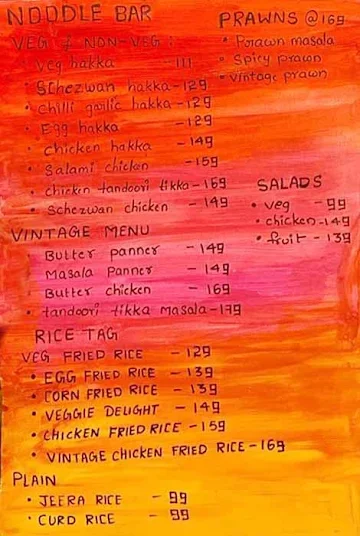 NOODLE BAR
VEG & NON-VEG:
• veg hakka - 111
• SChezwan hakka - 129
• Chilli garlic hakka - 129
• Egg hakka - 129
• chicken hakka - 149
• Salami chicken - 159
• chicken tandoori tikka - 169
• Schezwan chicken - 149
VINTAGE MENU
Butter panner - 149
Masala Panner - 149
Butter chicken - 169
• tandoori tikka masala - 179
RICE TAG
VEG FRIED RICE - 129
• EGG FRIED RICE - 139
• CORN FRIED RICE - 139
• VEGGIE DELIGHT - 149
• CHICKEN FRIED RICE - 159
• VINTAGE CHICKEN FRIED RICE - 169
PLAIN
• JEERA RICE - 99
• CURD RICE - 99
PRAWNS @169
• Prawn masala
• Spicy prawn
• vintage prawn
SALADS
• veg - 99
• chicken - 149
• fruit - 139